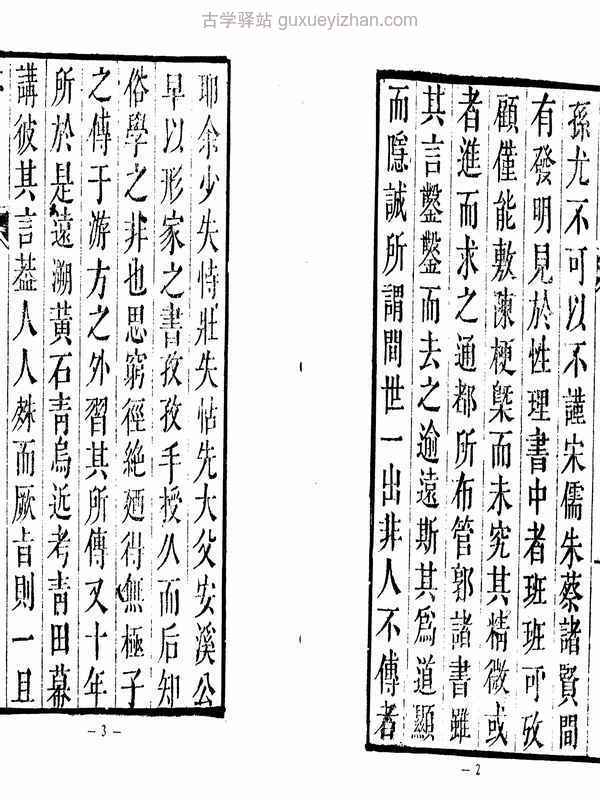 古学驿站 guxueyizhan.com
孫尤不可以不謹宋儒朱蔡諸賢間
有發明見於性理書中者班班可攷
顧僅能敷陳梗槩而未究其精微或
者進而求之通都所布管郭諸書雖
其言鑿鑿而去之逾遠斯其爲道顯
而隱誠所謂間世一出非人不傳者
— 2
耶余少失恃壯失怙先大父安溪公
早以形家之書孜孜手授久而后知
俗學之非也思窮徑絶廼得無極子
之傳于游方之外習其所傳又十年
所於是遠溯黃石青烏近考青田幕
講彼其言葢人人殊而厥旨則一且
— 3 —